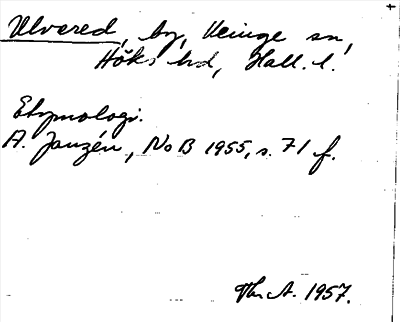 Ulvered, by, Veinge sn,
Höks hd, Hall. l.
Etymologi.
A. Janzén, NoB 1955, s. 71 f.
Th. A. 1957.